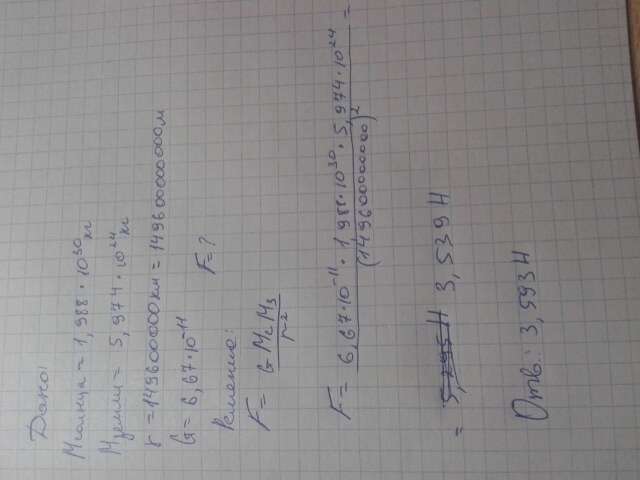 Дано:
Mсолнца = 1,988 · 10³⁰ кг
Mземли = 5,974 · 10²⁴ кг
r = 149600000 км = 149600000000 м
G = 6,67 · 10⁻¹¹ F = ?
Решение:
F = G Mс Mз / r²
F = 6,67 · 10⁻¹¹ · 1,988 · 10³⁰ · 5,974 · 10²⁴ / (149600000000)² =
= 3,539 Н
Отв: 3,593 Н